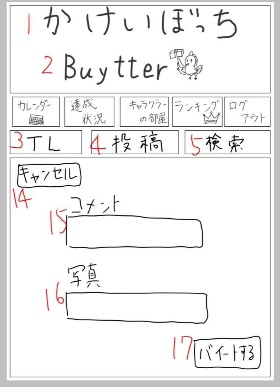 1 かけいぼっち
2 Buytter
カレンダー 達成状況 キャラクターの部屋 ランキング ログアウト
3 TL 4 投稿 5 検索
キャンセル
14
15 コメント
写真
16
17 バイートする